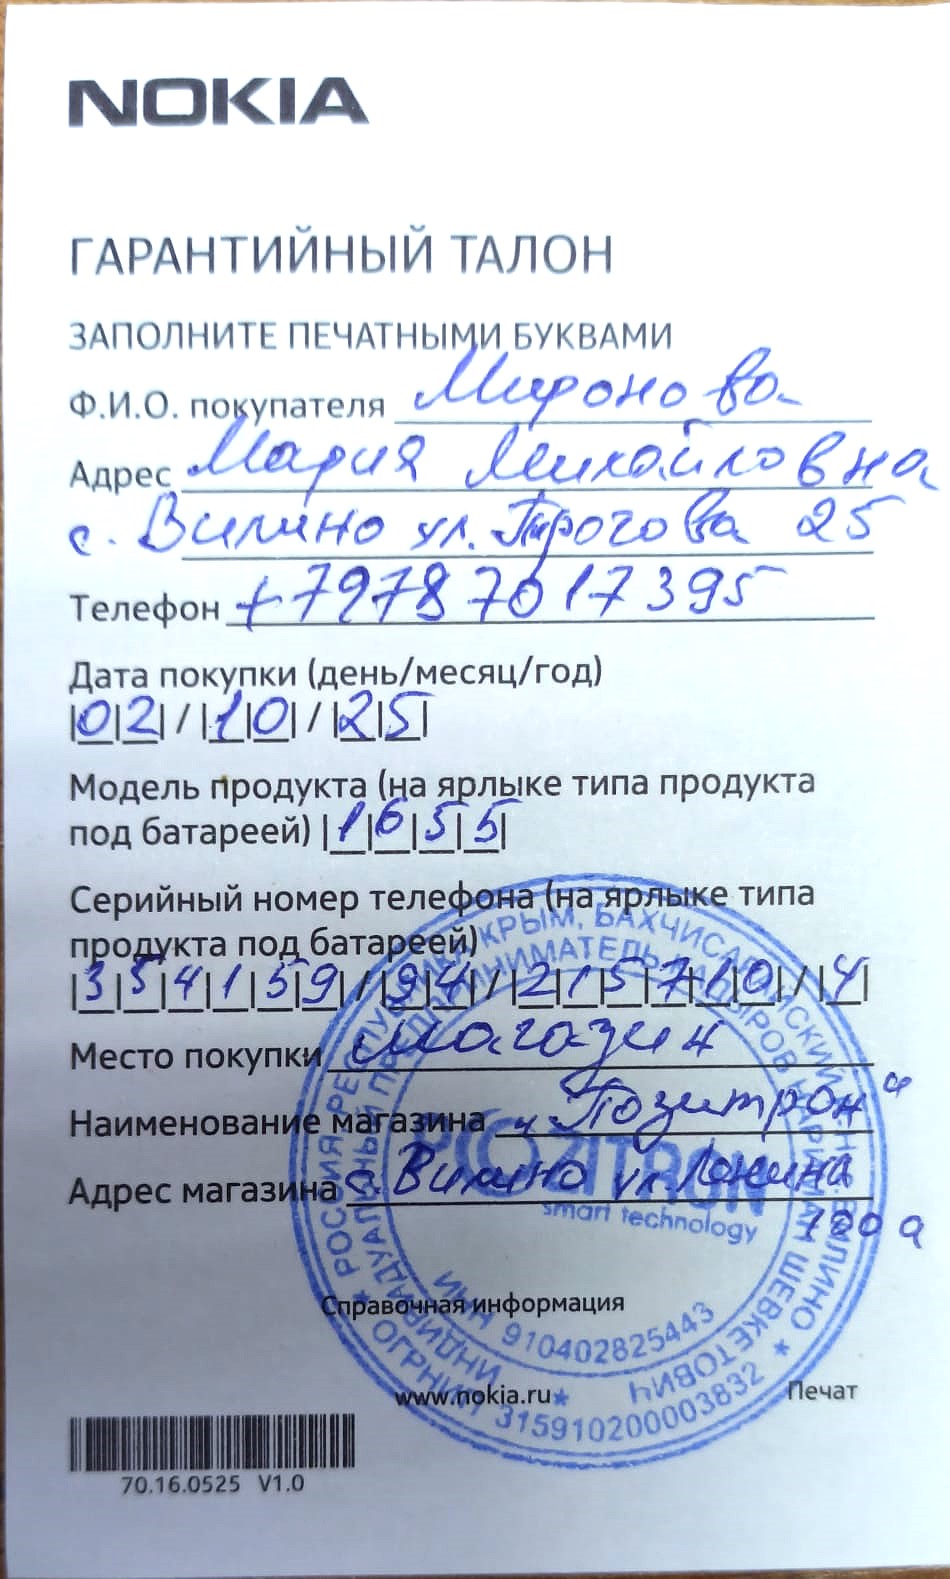 NOKIA
ГАРАНТИЙНЫЙ ТАЛОН
ЗАПОЛНИТЕ ПЕЧАТНЫМИ БУКВАМИ
Ф.И.О. покупателя Миронова
Адрес Мария Михайловна
с. Вилино ул. Пирогова 25
Телефон +79787017395
Дата покупки (день/месяц/год)
|0|2| / |1|0| / |2|5|
Модель продукта (на ярлыке типа продукта
под батареей) |1|6|5|5|
Серийный номер телефона (на ярлыке типа
продукта под батареей)
|3|5|4|1|5|9| / |9|4| / |2|1|5|7|1|0| / |4|
Место покупки магазин
Наименование магазина "Позитрон"
Адрес магазина с. Вилино ул. Ленина
100 а
POZITRON
smart technology
РОССИЯ, РЕСПУБЛИКА КРЫМ, БАХЧИСАРАЙСКИЙ ВИЛИНО
ИНДИВИДУАЛЬНЫЙ ПРЕДПРИНИМАТЕЛЬ НАРИМАН ШЕВКЕТОВИЧ
ИНН 910402825443
ОГРНИП 315910200003832
Справочная информация
www.nokia.ru
Печат
70.16.0525 V1.0